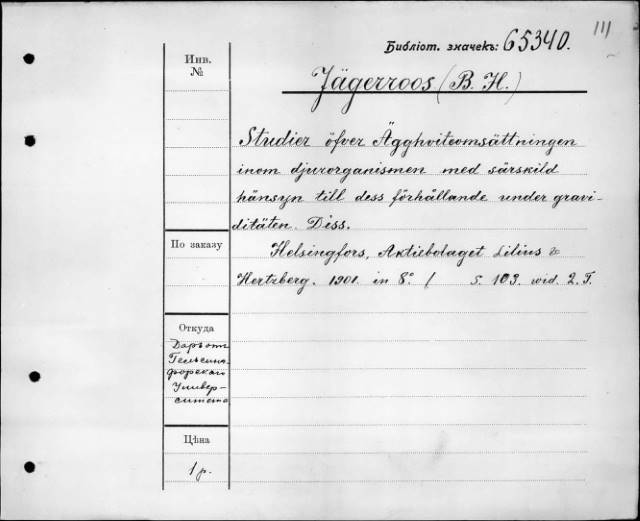 111
Библіот. значекъ: 65340.
Инв.
№
Jägerroos (B. H.)
Studier öfver Ägghviteomsättningen
inom djurorganismen med särskild
hänsyn till dess förhållande under gravi-
ditäten. Diss.
По заказу
Helsingfors, Aktiebolaget Lilius &
Hertzberg. 1901. in 8° / S. 103. wid. 2. T.
Откуда
Даръ отъ
Гельсинг-
форскаго
Универ-
ситета
Цѣна
1 р.